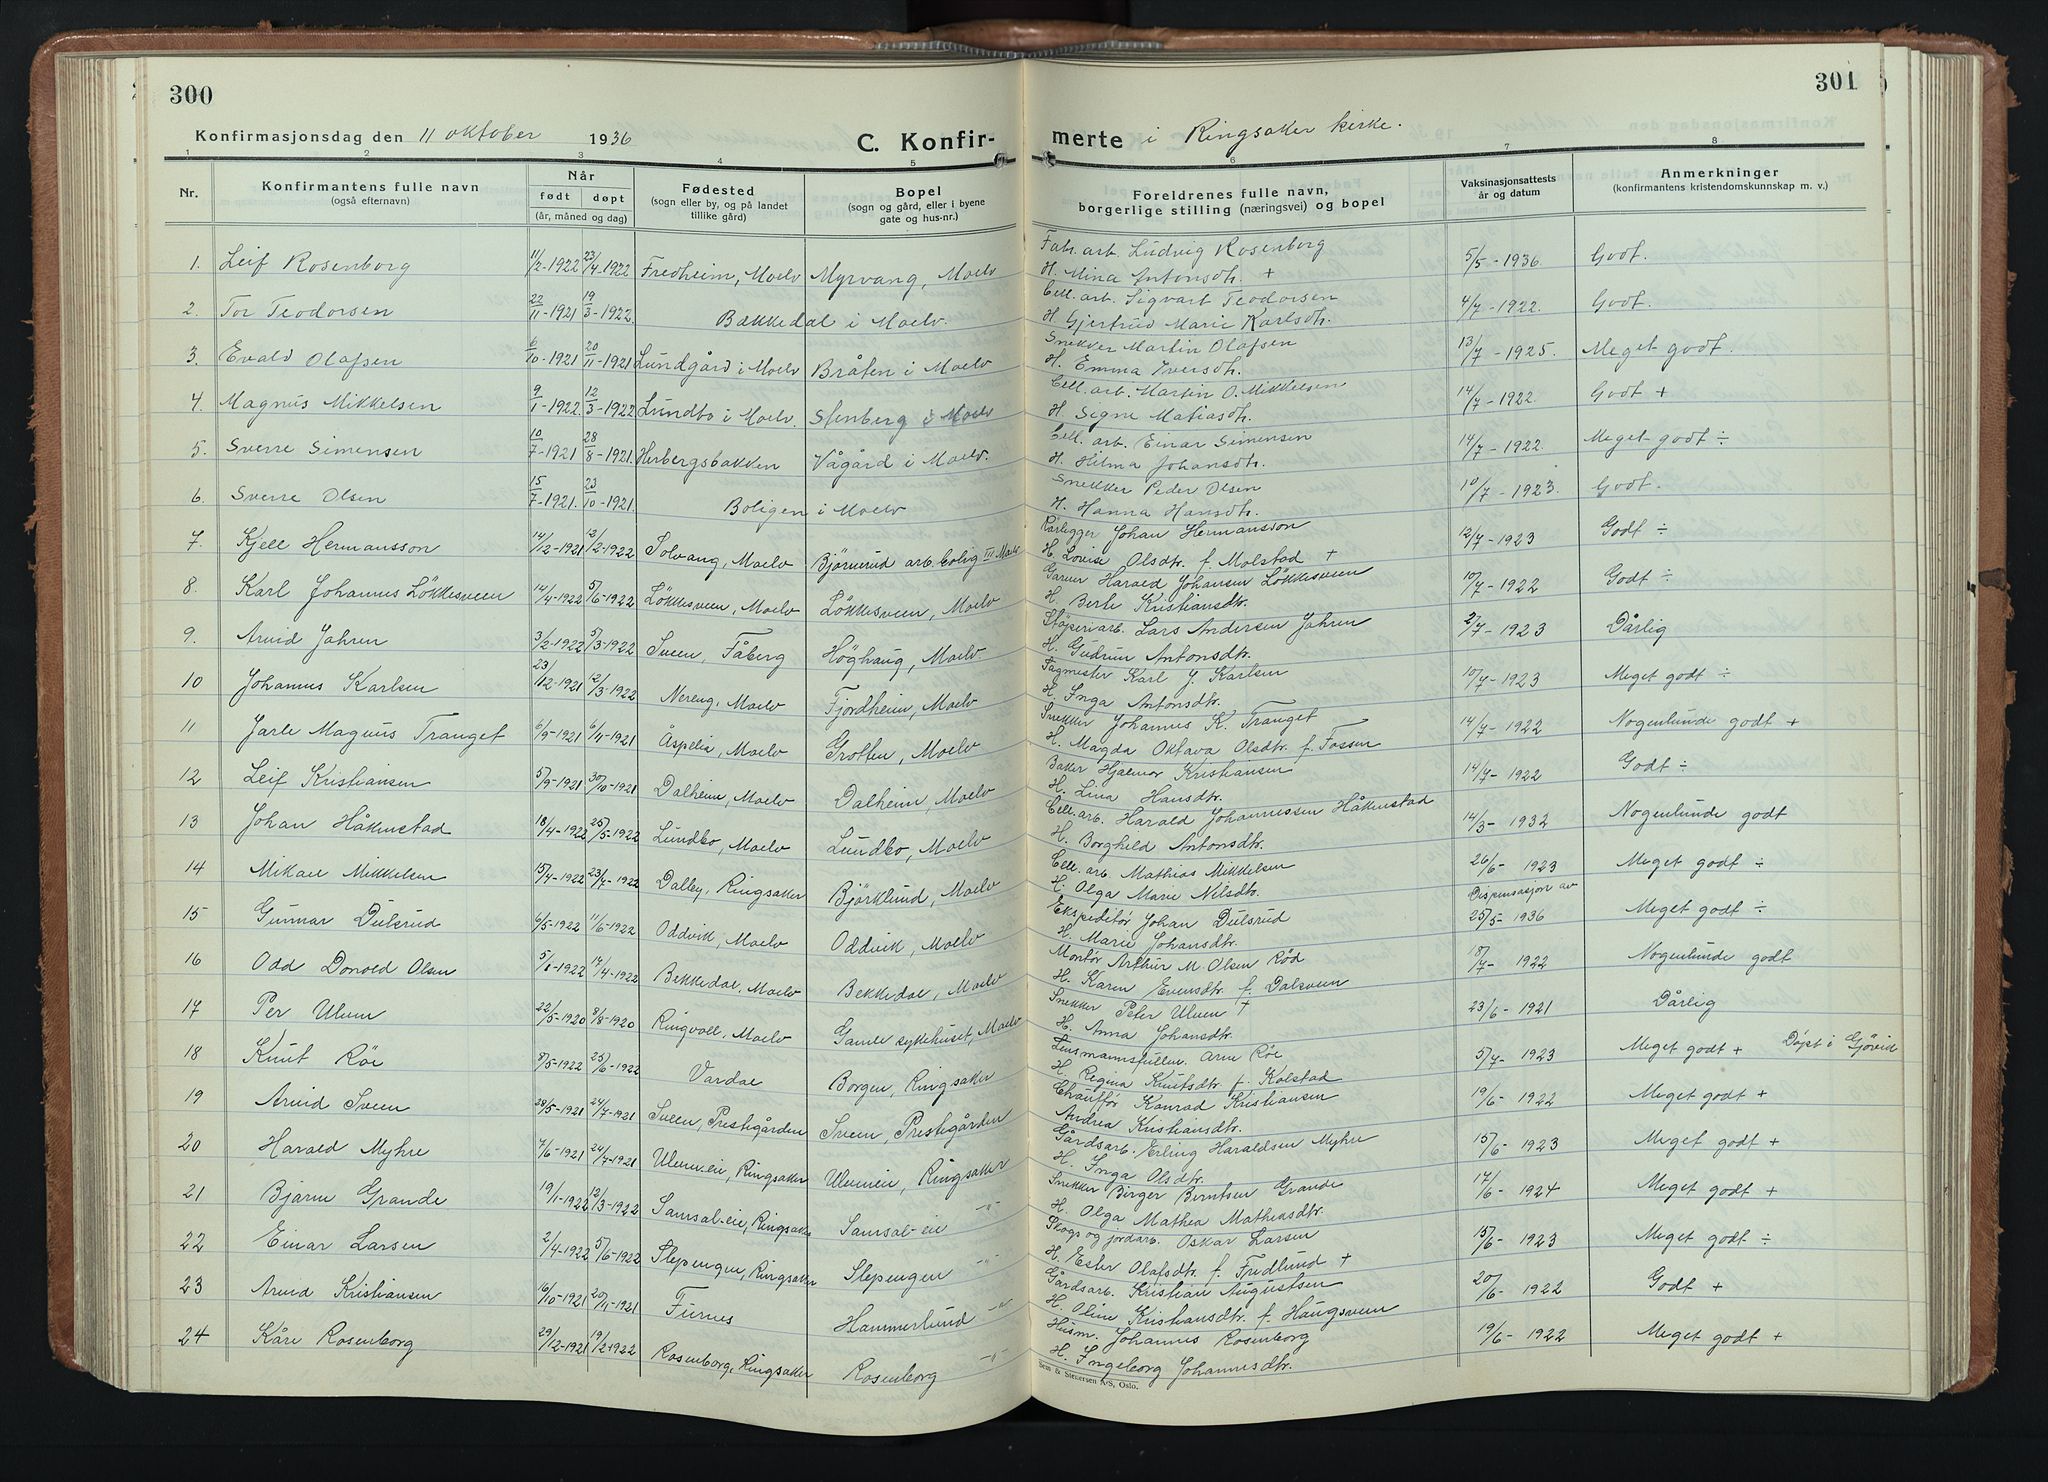 300
301
Konfirmasjonsdag den 11 oktober 1936
C. Konfir-
merte i Ringsaker kirke.
1 2 3 4 5 6 7 8
Nr.
Konfirmantens fulle navn
(også efternavn)
Når
født døpt
(år, måned og dag)
Fødested
(sogn eller by, og på landet
tillike gård)
Bopel
(sogn og gård, eller i byene
gate og hus-nr.)
Foreldrenes fulle navn,
borgerlige stilling (næringsvei) og bopel
Vaksinasjonsattests
år og datum
Anmerkninger
(konfirmantens kristendomskunnskap m. v.)
1. Leif Rosenborg 11/2-1922 23/4-1922 Fredheim, Moelv Myrvang, Moelv Fabr. arb. Ludvig Rosenborg 5/5-1936. Godt.
H. Mina Antonsdtr. +
2. Tor Teodorsen 22/11-1921 19/3-1922. Bækkedal i Moelv. Cell. arb. Sigvart Teodorsen 4/7-1922. Godt.
H. Gjertrud Marie Karlsdtr.
3. Evald Olafsen 6/10-1921 20/11-1921 Lundgård i Moelv Bråten i Moelv Snekker Martin Olafsen 13/7-1925. Meget godt.
H. Emma Iversdtr.
4. Magnus Mikkelsen 9/1-1922 12/3-1922 Lundbo i Moelv. Stenberg i Moelv Cell. arb. Martin O. Mikkelsen 14/7-1922. Godt +
H. Signe Matiasdtr.
5. Sverre Simensen 10/7-1921 28/8-1921. Herbergsbakken Vågård i Moelv. Cell. arb. Einar Simensen 14/7-1922. Meget godt ÷
H. Hilma Johansdtr.
6. Sverre Olsen 15/7-1921. 23/10-1921. Boligen i Moelv Snekker Peder Olsen 10/7-1923. Godt.
H. Hanna Hansdtr.
7. Kjell Hermansson 14/2-1921 12/2-1922 Solvang, Moelv Bjørnerud arb. bolig III Moelv Rørlegger Johan Hermansson 12/7-1923 Godt ÷
H. Lovise Olsdtr. f. Molstad +
8. Karl Johannes Løkkesveen 14/4-1922 5/6-1922 Løkkesveen, Moelv Løkkesveen, Moelv Garver Harald Johansen Løkkesveen 10/7-1922 Godt ÷
H. Berte Kristiansdtr.
9. Arvid Jahren 3/2-1922 5/3-1922 Sveen, Fåberg Höghaug, Moelv. Støperiarb. Lars Andersen Jahren 2/7-1923 Dårlig
H. Gudrun Antonsdtr.
10 Johannes Karlsen 23/12-1921 12/3-1922 Nereng, Moelv Fjordheim, Moelv Fagmester Karl J. Karlsen 10/7-1923 Meget godt ÷
H. Inga Antonsdtr.
11 Jarle Magnus Tranget 6/9-1921 6/11-1921 Åspelia, Moelv Grotten, Moelv Snekker Johannes K. Tranget 14/7-1922 Nogenlunde godt +
H. Magda Oktava Olsdtr. f. Fossen
12 Leif Kristiansen 5/9-1921 30/10-1921 Dalheim, Moelv Dalheim, Moelv Baker Hjalmar Kristiansen 14/7-1922 Godt ÷
H. Lina Hansdtr.
13 Johan Håkenstad 18/4-1922 25/5-1922 Lundbo, Moelv Lundbo, Moelv Cell. arb. Harald Johannessen Håkenstad 14/3-1932 Nogenlunde godt
H. Borghild Antonsdtr.
14 Mikael Mikkelsen 15/4-1922 23/7-1922 Dalley, Ringsaker Bjørklund, Moelv Cell. arb. Mathias Mikkelsen 26/6-1923 Meget godt ÷
H. Olga Marie Nelsdtr. Dispensasjon av
15 Gunnar Dulsrud 6/5-1922 11/6-1922 Oddvik, Moelv Oddvik, Moelv Ekspeditør Johan Dulsrud 25/5-1936 Meget godt ÷
H. Marie Johansdtr.
16 Odd Donald Olsen 5/1-1922 17/4-1922 Bekkedal, Moelv Bekkedal, Moelv Montør Arthur M. Olsen Rød 18/7-1922 Nogenlunde godt
H. Karen Evensdtr. f. Dalsveen
17 Per Ulven 22/5-1920 8/8-1920 Ringvoll, Moelv Gamle sykehuset, Moelv Snekker Peter Ulven + 23/6-1921 Dårlig
H. Anna Johansdtr.
18 Knut Røe 8/5-1922 25/6-1922 Vardal Borgen, Ringsaker Lensmannsfullm. Arne Røe 5/7-1923 Meget godt + Døpt i Gjøvik
H. Regina Knutsdtr. f. Kolstad
19 Arvid Sveen 28/5-1921 24/7-1921 Sveen, Prestegården Sveen, Prestegården Chauffør Konrad Kristiansen 19/6-1922 Meget godt +
Andrea Kristiansdtr.
20 Harald Myhre 7/6-1921 24/7-1921 Ulven-eie, Ringsaker Ulveneie, Ringsaker Gårdsarb. Erling Haraldsen Myhre 15/6-1923 Meget godt +
H. Inga Olsdtr.
21 Bjarne Grande 19/1-1922 12/3-1922 Samsal-eie, Ringsaker Samsal-eie -"- Snekker Birger Berntsen Grande 17/6-1924 Meget godt +
H. Olga Mathea Mathiasdtr.
22 Einar Larsen 2/4-1922 5/6-1922 Slepengen, Ringsaker Slepengen -"- Skogs og jordarb. Oskar Larsen 15/6-1923 Meget godt ÷
H. Ester Olafsdtr. f. Fredlund +
23 Arvid Kristiansen 16/10-1921 20/11-1921 Furnes Hammerlund -"- Gårdsarb. Kristian Augustsen 20/6-1922 Godt +
H. Oline Kristiansdtr. f. Haugsveen
24 Kåre Rosenborg 29/12-1921 19/2-1922 Rosenborg, Ringsaker Rosenborg -"- Husm. Johannes Rosenborg 19/6-1922 Meget godt +
H. Ingeborg Johannesdtr.
Sem & Stenersen A/S, Oslo.